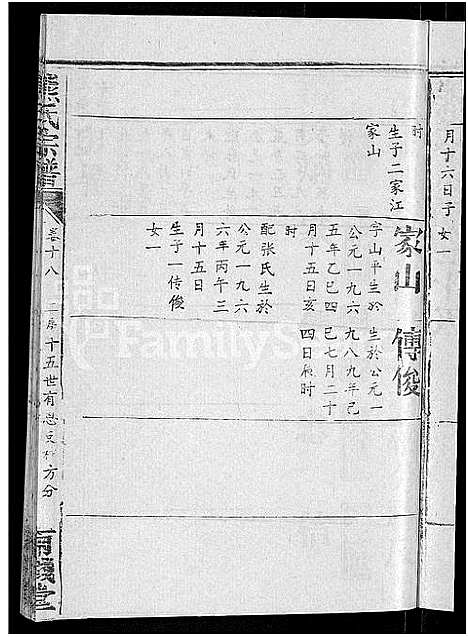 月十六日子女一
时
生子二家江
家山
家山
字山平生於
公元一九六
五年乙巳四
月十五日亥
时
配张氏生於
公元一九六
六年丙午三
月十五日
生子一传俊
女一
傅俊
生於公元一
九八九年己
巳七月二十
四日辰时
熊氏宗谱
卷十八
十五世有
方分
堂
FamilyS